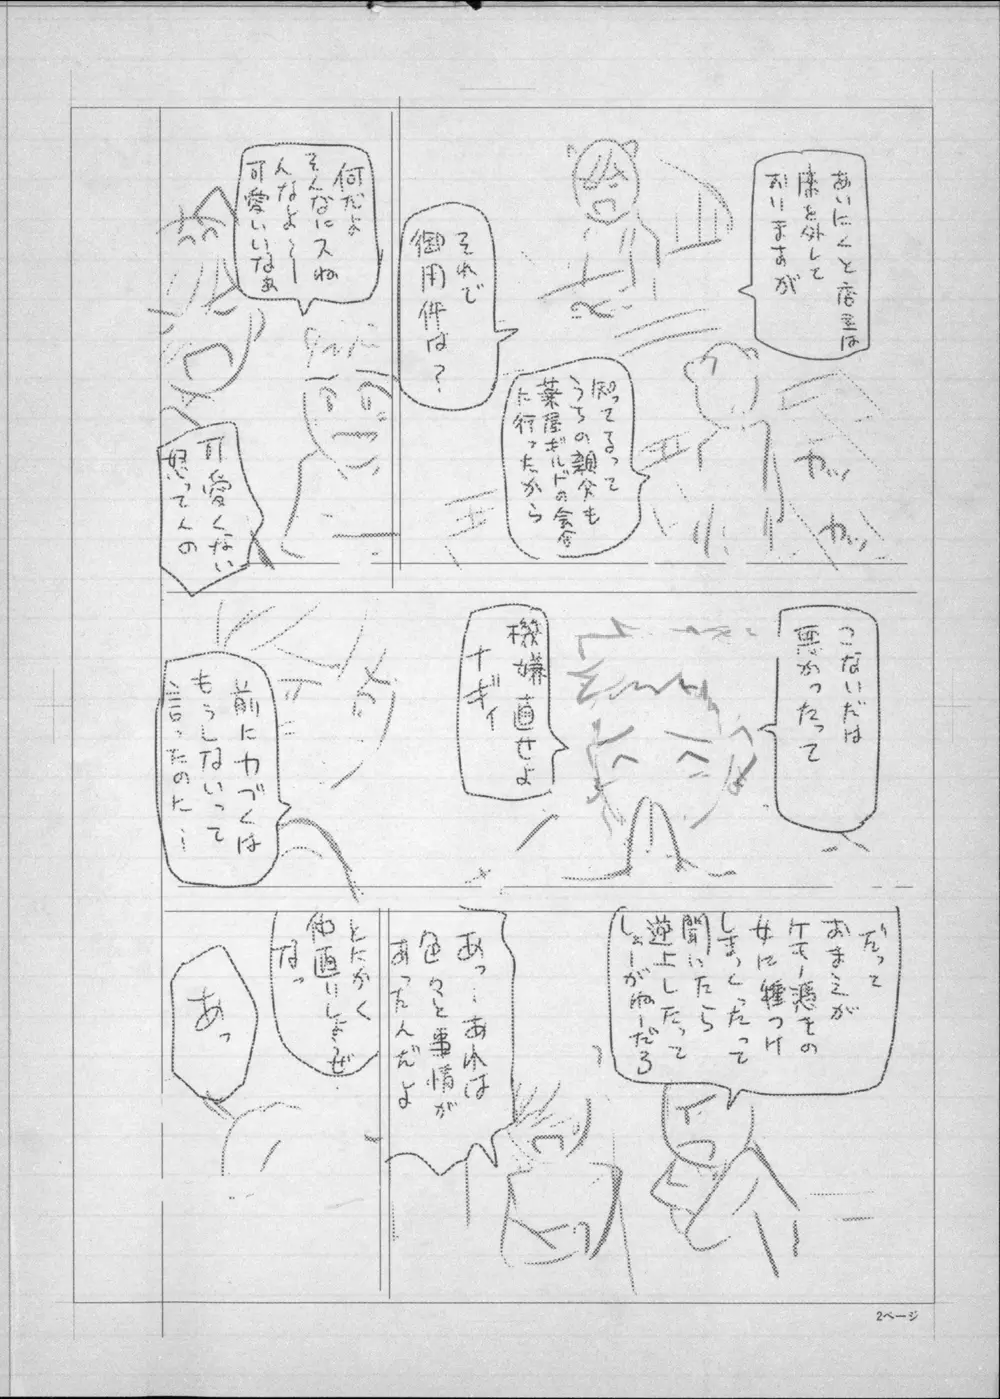 あいにくと店主は
席を外して
おりますが
知ってるって
うちの親父も
薬屋ギルドの会合
に行ったから
ガッ
ガッ
それで
御用件は?
何だよ
そんなにスね
んなよ〜
可愛いいなぁ
可愛くない
怒ってんの
こないだは
悪かったって
機嫌直せよ
ナギィ
前に力づくは
もうしないって
言ったのに…
だって
おまえが
ケモノ憑きの
女に種つけ
しまくったって
聞いたら
逆上したって
しょーがねーだろ
あっ…あれは
色々と事情が
あったんだよ
とにかく
仲直りしようぜ
なっ
あっ
2ページ